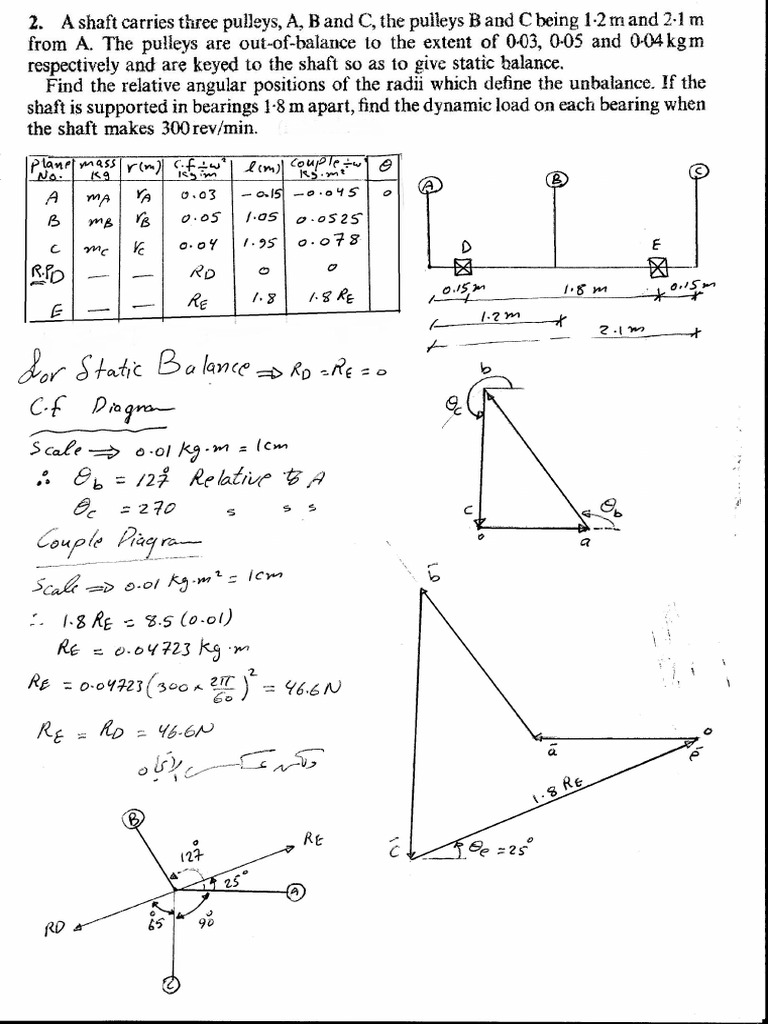 2. A shaft carries three pulleys, A, B and C, the pulleys B and C being 1·2 m and 2·1 m
from A. The pulleys are out-of-balance to the extent of 0·03, 0·05 and 0·04 kg m
respectively and are keyed to the shaft so as to give static balance.
Find the relative angular positions of the radii which define the unbalance. If the
shaft is supported in bearings 1·8 m apart, find the dynamic load on each bearing when
the shaft makes 300 rev/min.
Plane No. mass kg r(m) C.f ÷ω² kg·m l(m) Couple ÷ω² kg·m² θ
A mA rA 0.03 -0.15 -0.045 0
B mB rB 0.05 1.05 0.0525
C mC rC 0.04 1.95 0.078
R.P D — — RD 0 0
E — — RE 1.8 1.8 RE
A B C
D E
0.15m 1.8 m 0.15m
1.2 m
2.1 m
for Static Balance ⇒ RD = RE = 0
C.f Diagram
Scale ⇒ 0.01 kg·m = 1cm
∴ θb = 127° Relative to A
θc = 270 s s s
b
θc
c
o
a
θb
Couple Diagram
Scale ⇒ 0.01 kg·m² = 1cm
∴ 1.8 RE = 8.5 (0.01)
RE = 0.04723 kg·m
RE = 0.04723 (300 × 2π/60)² = 46.6 N
RE = RD = 46.6N
b̄
ā
o
ē
1.8 RE
c̄
θe = 25°
B
127°
RE
25°
A
RD
65°
90°
C